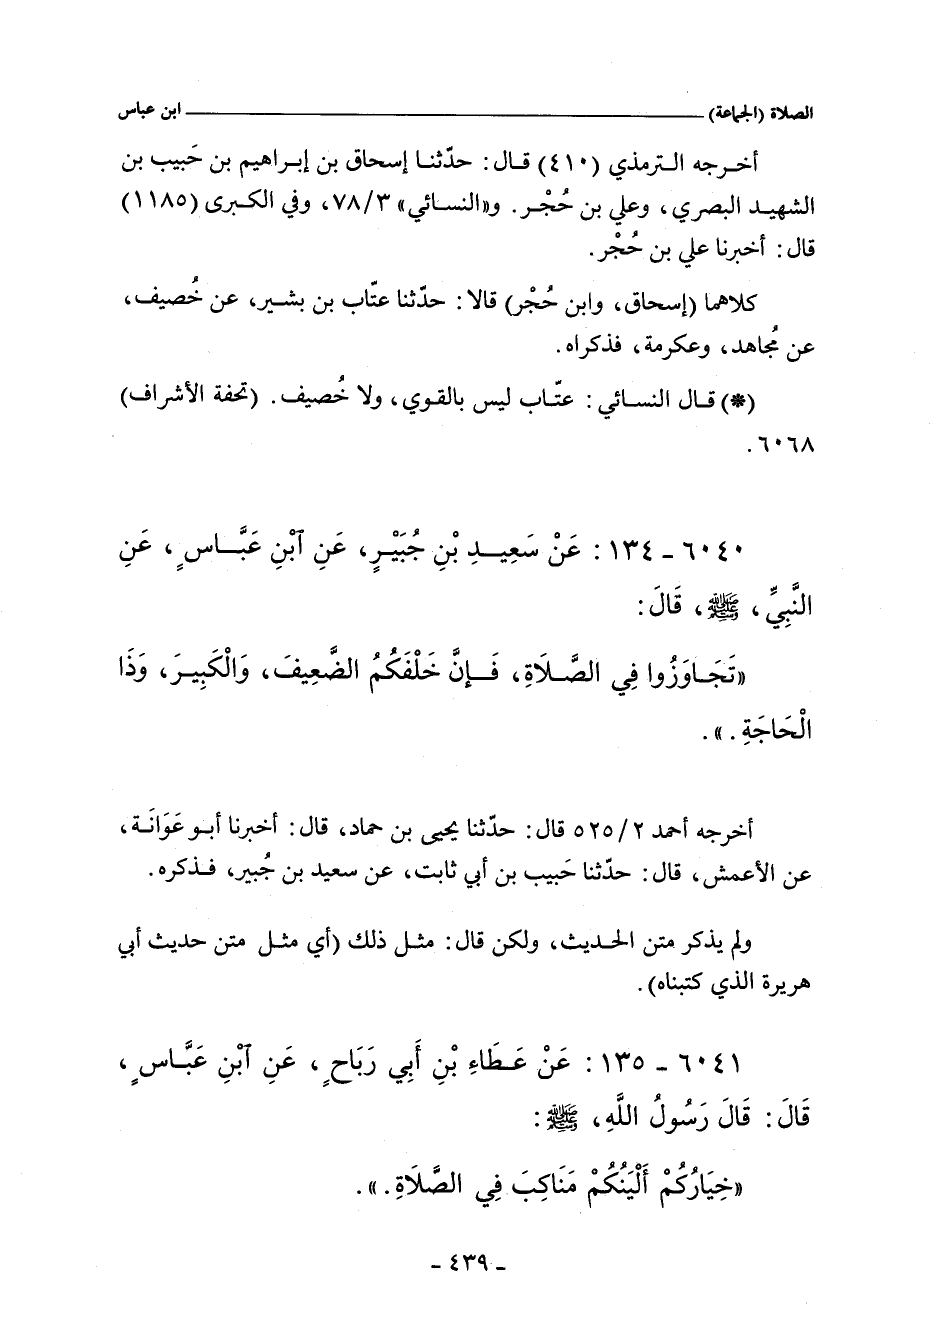 الصلاة (الجماعة) ــــــــــــــــــــ ابن عباس
أخرجه الترمذي (٤١٠) قال: حدّثنا إسحاق بن إبراهيم بن حَبيب بن
الشهيد البصري، وعلي بن حُجْر. و«النسائي» ٧٨/٣، وفي الكبرى (١١٨٥)
قال: أخبرنا علي بن حُجْر.
كلاهما (إسحاق، وابن حُجْر) قالا: حدّثنا عتّاب بن بشير، عن خُصيف،
عن مُجاهد، وعكرمة، فذكراه.
(*) قال النسائي: عتّاب ليس بالقوي، ولا خُصيف. (تحفة الأشراف)
٦٠٦٨.
٦٠٤٠ ـ ١٣٤: عَنْ سَعِيدِ بْنِ جُبَيْرٍ، عَنِ ٱبْنِ عَبَّاسٍ، عَنِ
النَّبِيِّ، ﷺ، قَالَ:
«تَجَاوَزُوا فِي الصَّلَاةِ، فَإِنَّ خَلْفَكُمُ الضَّعِيفَ، وَالْكَبِيرَ، وَذَا
الْحَاجَةِ.».
أخرجه أحمد ٥٢٥/٢ قال: حدّثنا يحيى بن حماد، قال: أخبرنا أبو عَوَانَة،
عن الأعمش، قال: حدّثنا حَبيب بن أبي ثابت، عن سعيد بن جُبير، فذكره.
ولم يذكر متن الحديث، ولكن قال: مثل ذلك (أي مثل متن حديث أبي
هريرة الذي كتبناه).
٦٠٤١ ـ ١٣٥: عَنْ عَطَاءِ بْنِ أَبِي رَبَاحٍ، عَنِ ٱبْنِ عَبَّاسٍ،
قَالَ: قَالَ رَسُولُ اللَّهِ، ﷺ:
«خِيَارُكُمْ أَلْيَنُكُمْ مَنَاكِبَ فِي الصَّلَاةِ.».
ـ ٤٣٩ ـ